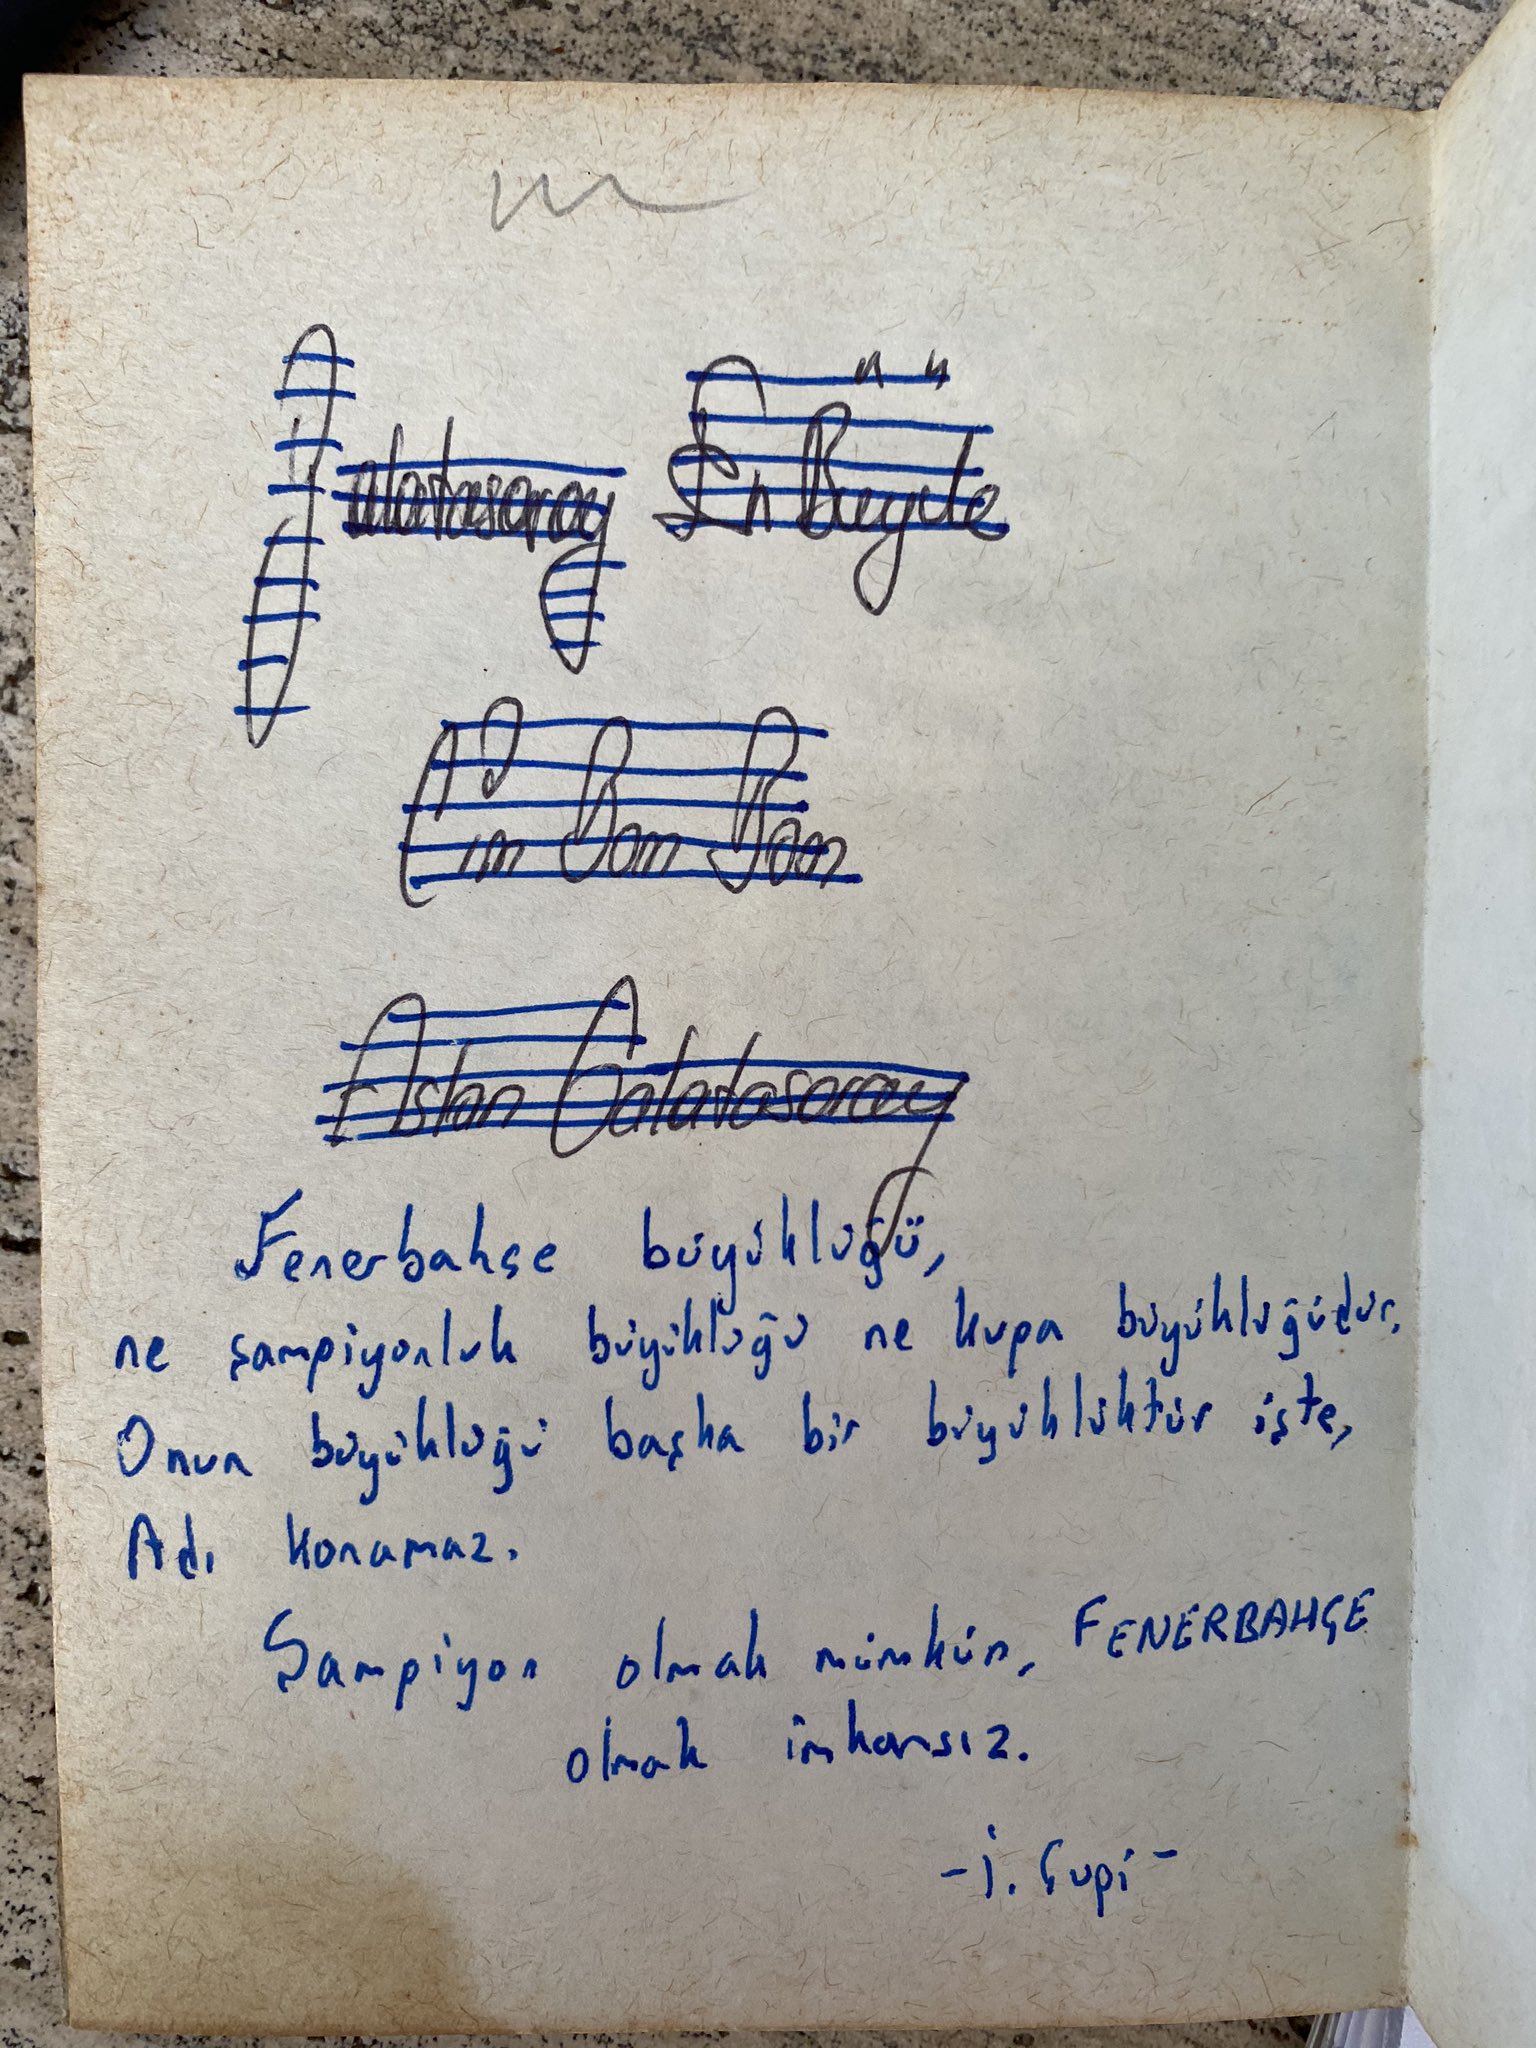 Galatasaray En Büyük
Cim Bom Bom
Aslan Galatasaray
Fenerbahçe büyüklüğü,
ne şampiyonluk büyüklüğü ne kupa büyüklüğüdür.
Onun büyüklüğü başka bir büyüklüktür işte,
Adı konamaz.
Şampiyon olmak mümkün, FENERBAHÇE
olmak imkansız.
-İ. Çupi-